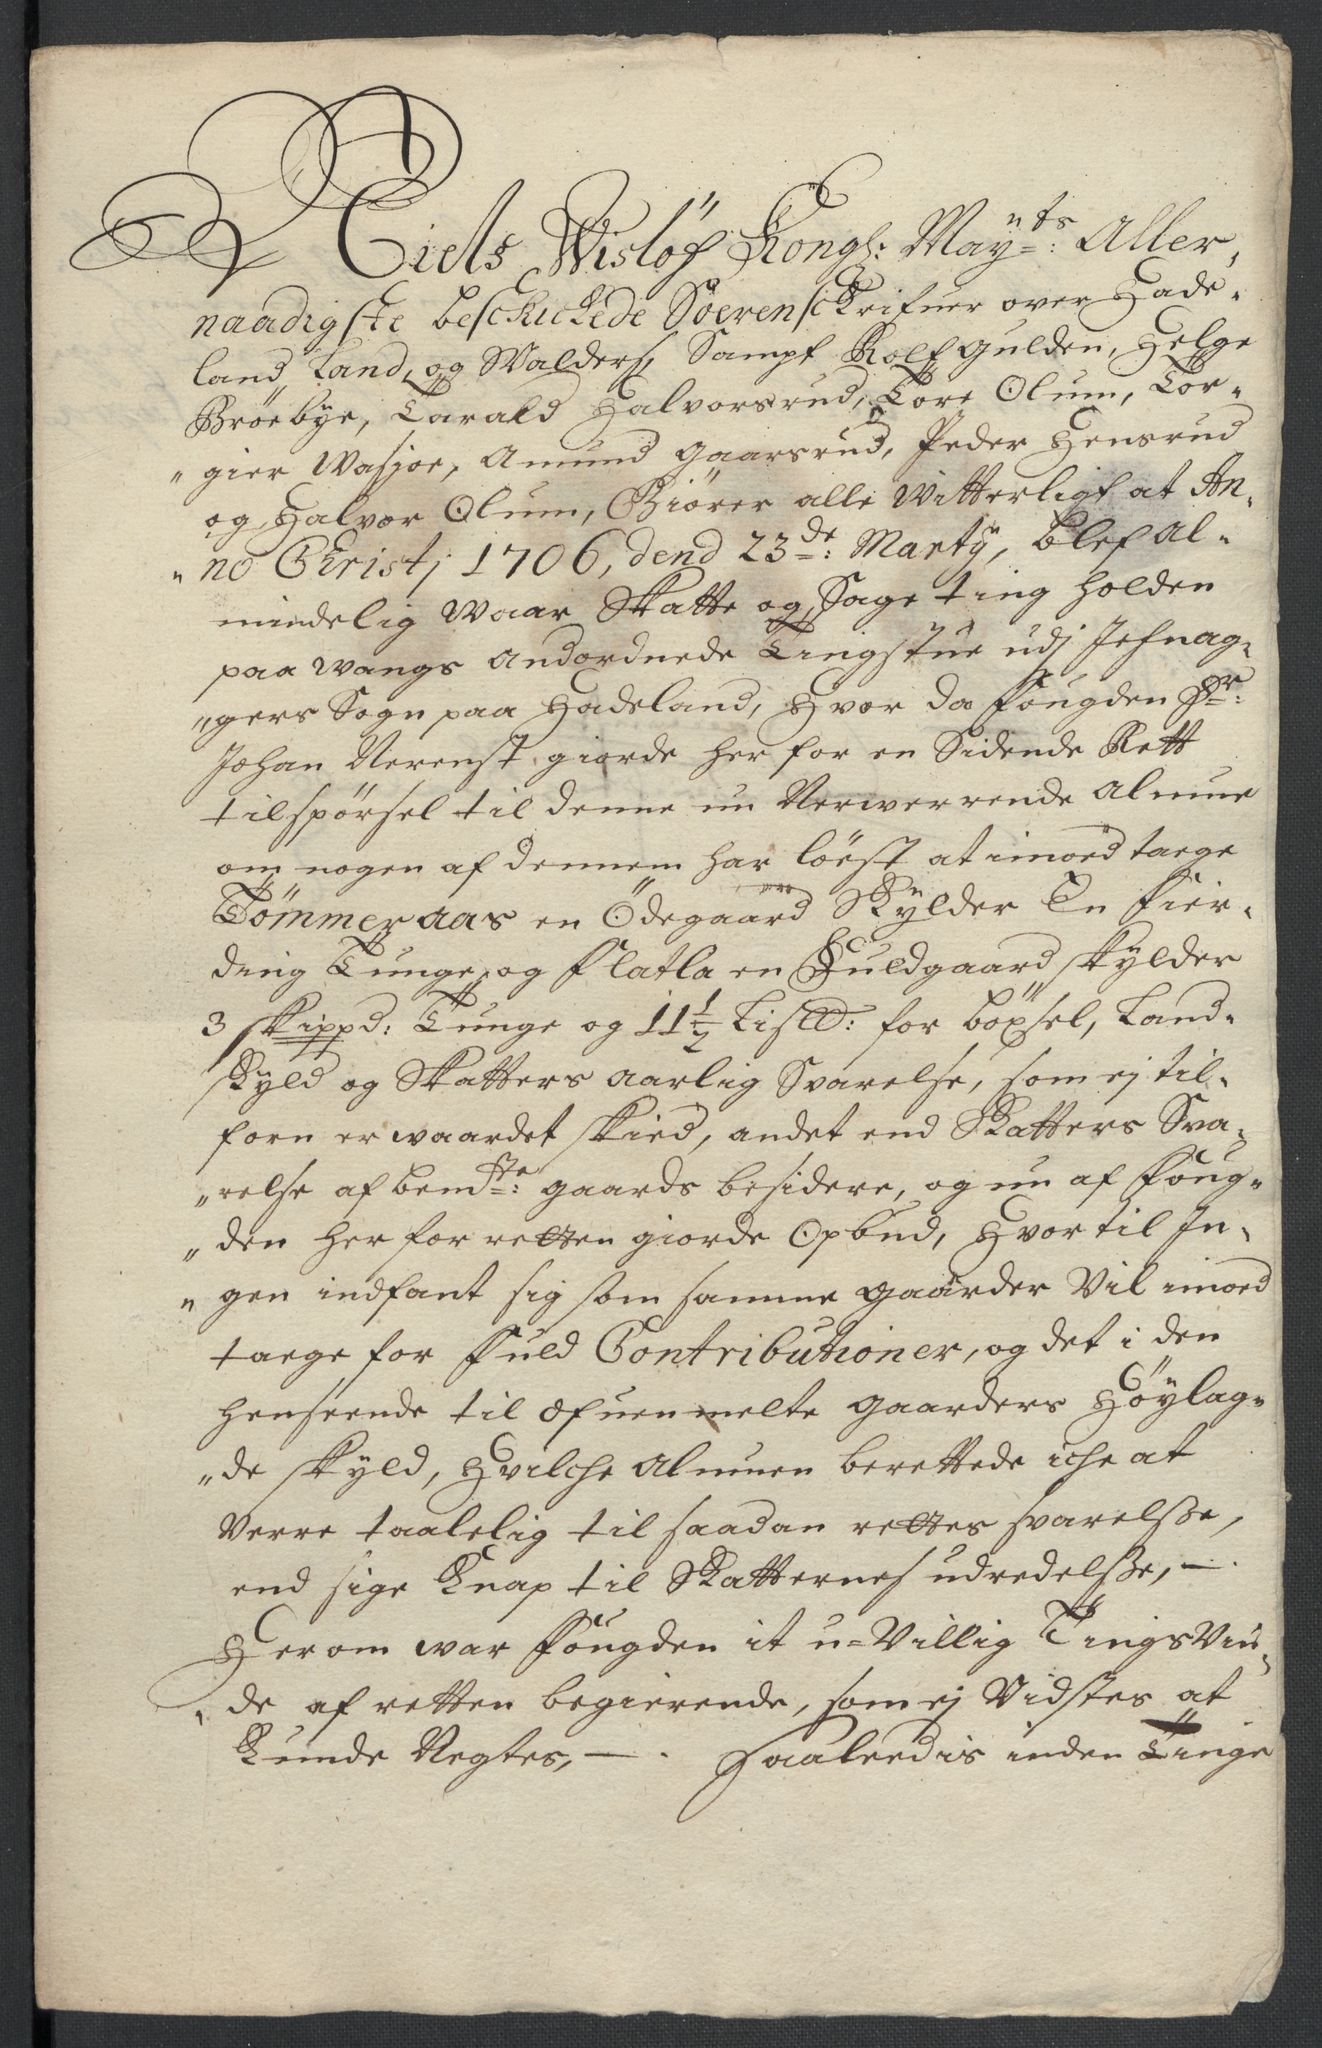 Niels Wislöf Kongl: May:nts Aller,
naadigste beschickede Soerenskrifuer over Hade-
land, Land, og Walders, Sampt Rolf gulden, Helge
Bröebÿe, Tarald Halvorsrud, Tore Olum, Tor-
"gier Wasjoe, Amund gaarsrud, Peder Hensrud
og Halvor Olum, Giörer alle Witterligt at An,
"no Christj 1706, dend 23de: Martÿ, blef al-
mindelig Waar Skatte og Sage ting holden
paa Wangs andordnede Tingstue udj Jefnag,
"gers Sogn paa Hadeland, Hvor da fougden Sr:
Johan Nerenst giorde her for en Sidende Rett
tilspörsel til denne nu Nerwerrende Almue
om nogen af dennem har löest at imod taege
Tömmeraas en Ödegaard Skÿlder En fier-
ding Tunge, og Flatla en Fuldgaard skÿlder
3 skippd: Tunge og 11½ Lis℔: for böxsel, Land-
skÿld og Skatters aarlig Svarelse, som ej til-
forn er waardet skied, andet end Skatters Sva-
"relse af bemte: gaards besidere, og nu af foug-
"den her for retten giorde Opbud, Hvortil In-
"gen indfant sig som samme gaarder Vil imod
taege for fuld Contributioner, og det i den
henseende til ofuenmelte gaarders Höÿlag-
"de skÿld, Hvilche Almuen berettede iche at
Verre taalelig til saadan rettes svarelsse,
end sige Knap til Skatternes udredelsse, —.
Herom war fougden it u-Villig TingsVin,
"de af retten begierende, som ej Vidstes at
Kunde Negtes, —. Saaleedis inden Tinge